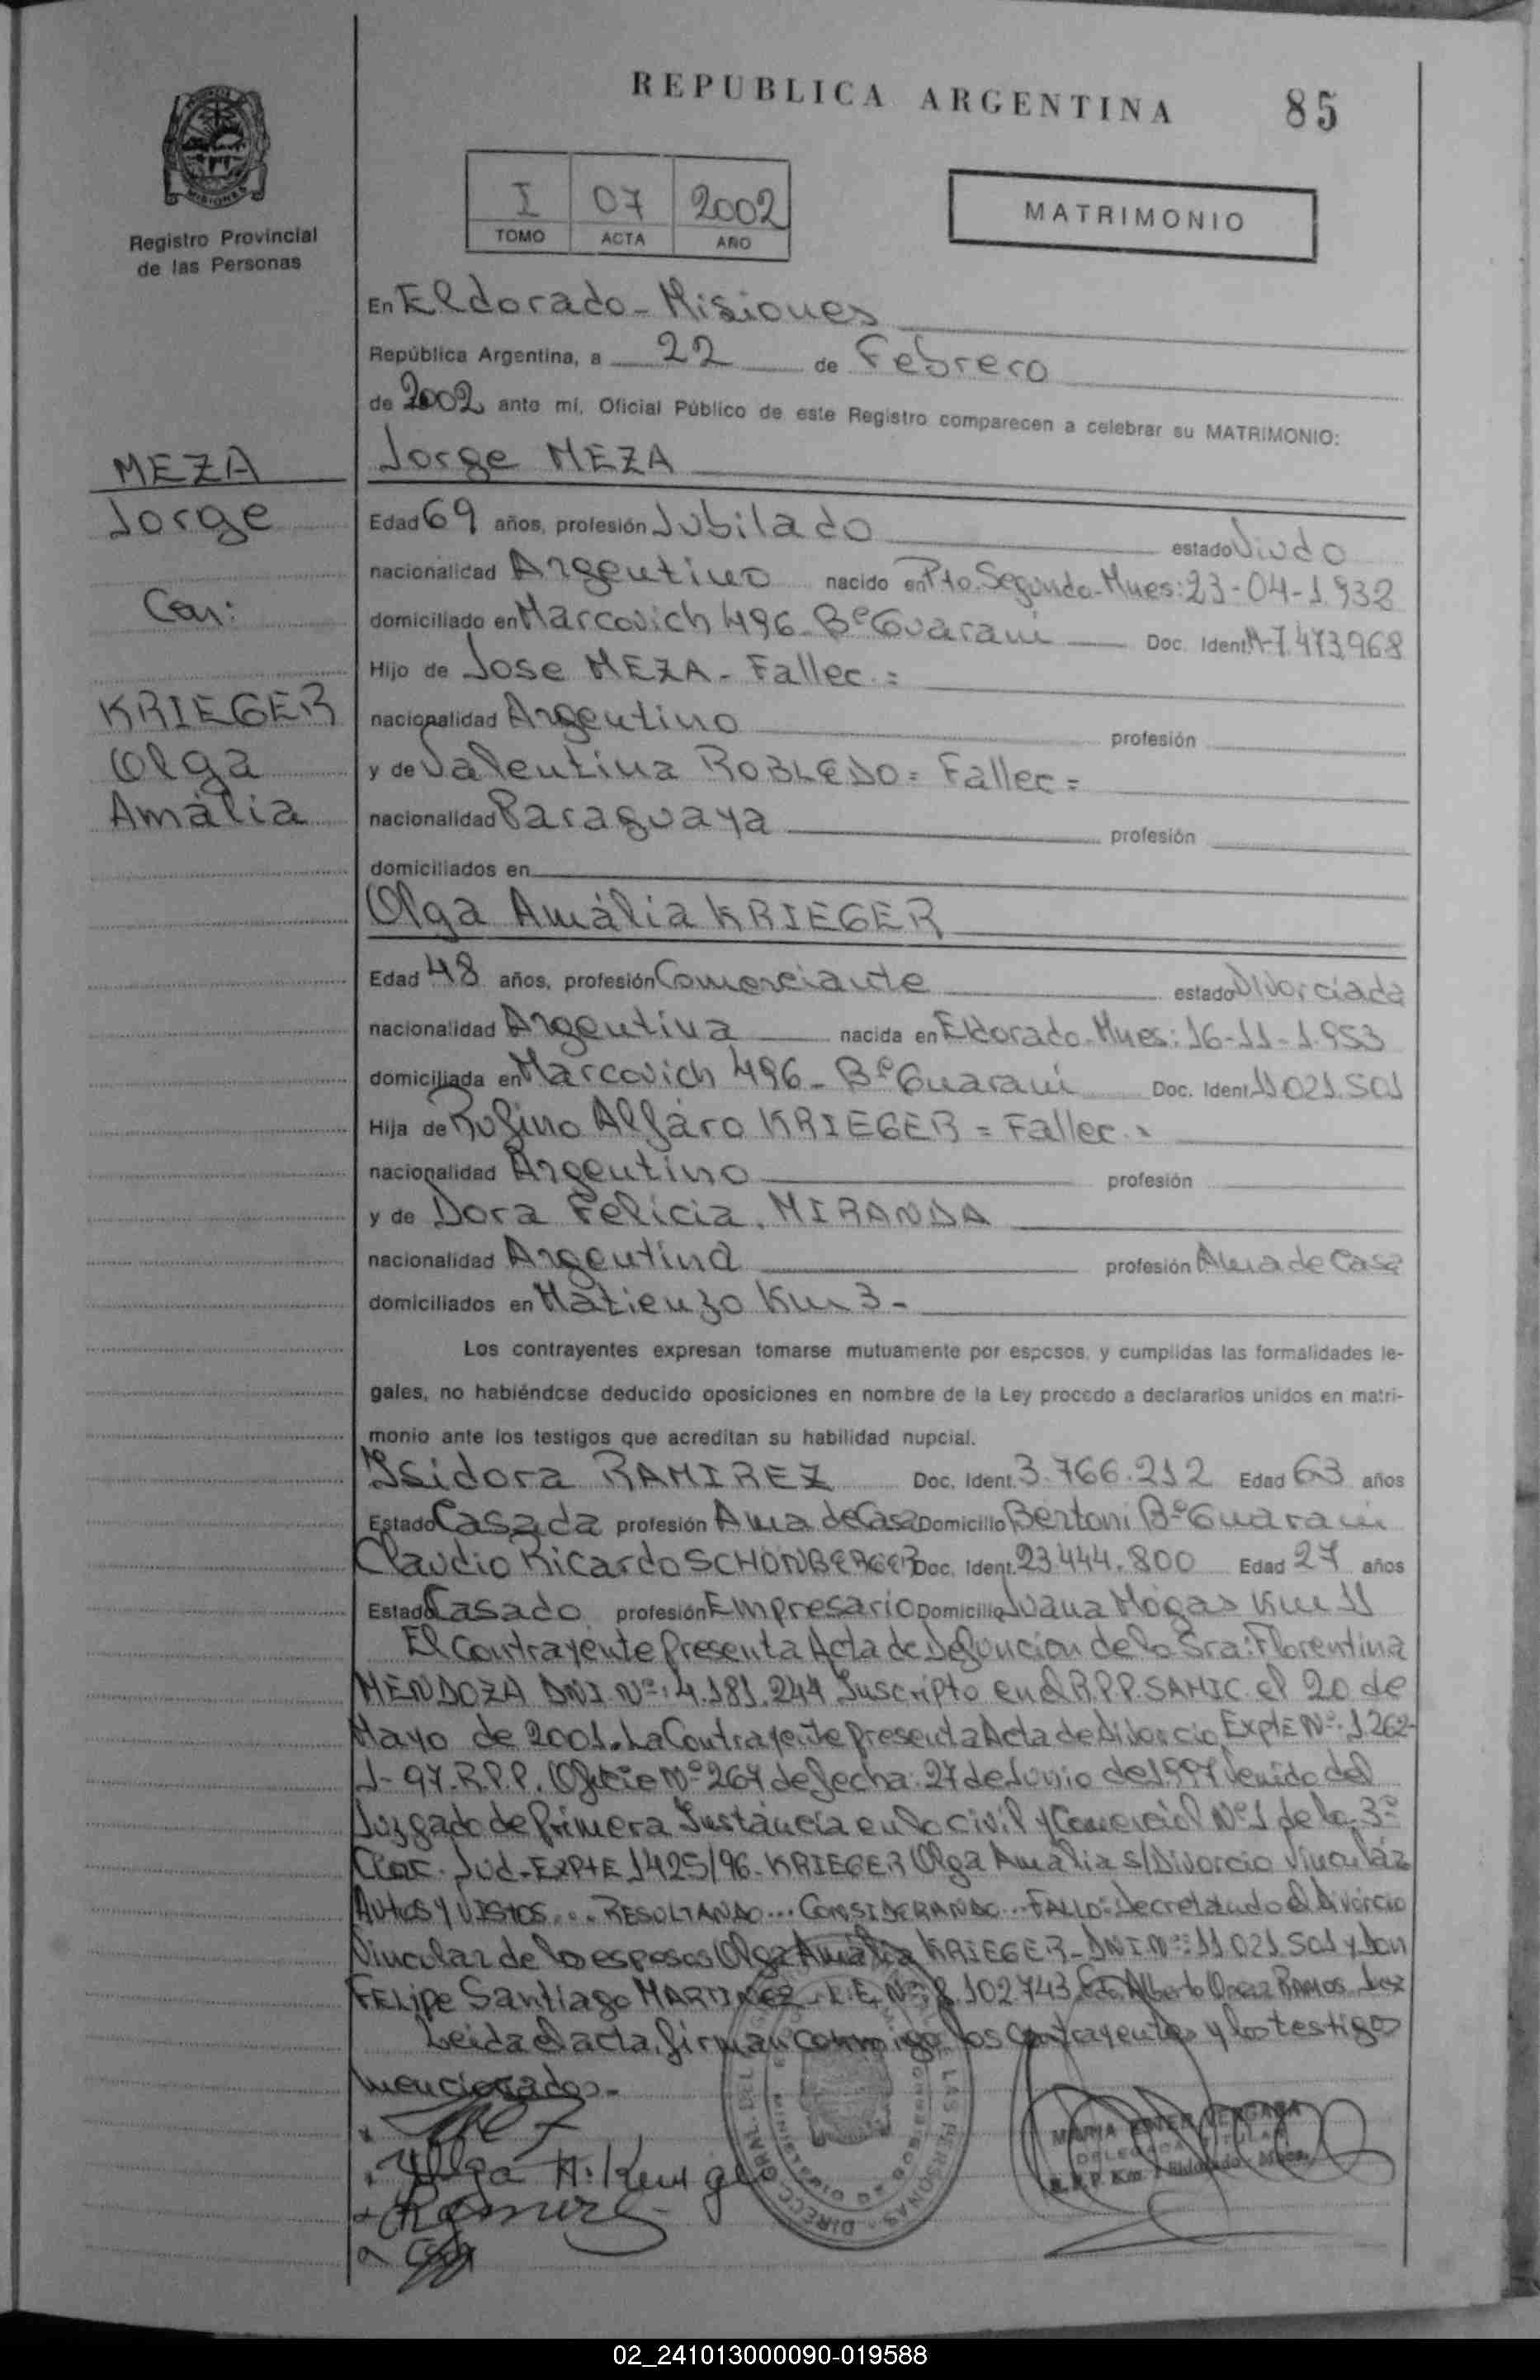 REPUBLICA ARGENTINA 85
I 07 2002
TOMO ACTA AÑO
MATRIMONIO
Registro Provincial
de las Personas
En Eldorado - Misiones
República Argentina, a 22 de Febrero
de 2002 ante mí, Oficial Público de este Registro comparecen a celebrar su MATRIMONIO:
MEZA
Jorge
Con:
KRIEGER
Olga
Amália
Jorge MEZA
Edad 69 años, profesión Jubilado estado Viudo
nacionalidad Argentino nacido en Pto. Segundo-Mnes: 23-04-1.932
domiciliado en Marcovich 496 - Bº Guaraní Doc. Ident. M-7.473.968
Hijo de Jose MEZA - Fallec. =
nacionalidad Argentino profesión
y de Valentina ROBLEDO = Fallec =
nacionalidad Paraguaya profesión
domiciliados en
Olga Amália KRIEGER
Edad 48 años, profesión Comerciante estado Divorciada
nacionalidad Argentina nacida en Eldorado-Mnes: 16-11-1.953
domiciliada en Marcovich 496 - Bº Guaraní Doc. Ident. 11.021.501
Hija de Rufino Alfáro KRIEGER = Fallec. =
nacionalidad Argentino profesión
y de Dora Felicia. MIRANDA
nacionalidad Argentina profesión Ama de Casa
domiciliados en Matienzo Km 3 -
Los contrayentes expresan tomarse mutuamente por esposos, y cumplidas las formalidades le-
gales, no habiéndose deducido oposiciones en nombre de la Ley procedo a declararlos unidos en matri-
monio ante los testigos que acreditan su habilidad nupcial.
Isidora RAMIREZ Doc. Ident. 3.766.212 Edad 63 años
Estado Casada profesión Ama de Casa Domicilio Bertoni Bº Guaraní
Claudio Ricardo SCHONBERGER Doc. Ident. 23.444.800 Edad 27 años
Estado Casado profesión Empresario Domicilio Juana Mogas Km 11
El Contrayente Presenta Acta de Defuncion de la Sra: Florentina
MENDOZA DNI. Nº: 4.181.244 Inscripto en el R.P.P. SAMIC el 20 de
Mayo de 2001. La Contrayente Presenta Acta de Divorcio ExptE Nº: 1262-
J-97-R.P.P. Oficio Nº 264 de fecha: 27 de Junio de 1.997 Venido del
Juzgado de Primera Instancia en lo Civil y Comercial Nº 1 de la 3ª
Circ. Jud-ExptE 1425/96 - KRIEGER Olga Amalia s/Divorcio Vinculár
Autos y Vistos... RESULTANDO... CONSIDERANDO... FALLO: Decretando el Divorcio
Vincular de los esposos Olga Amália KRIEGER - DNI. Nº: 11.021.501 y Don
FELipe Santiago MARTINEZ - L.E. Nº: 8.102.743 Alberto RAMOS Juez
Leida el acta, firman conmigo los Contrayentes y los testigos
mencionados -
Olga A. Krieger
Ramirez
MARIA ESTER VERGARA
DELEGADA TITULAR
R.P.P. Km. Eldorado - Mnes.
LAS PERSONAS - DIRECC. GRAL. DEL
02_241013000090-019588